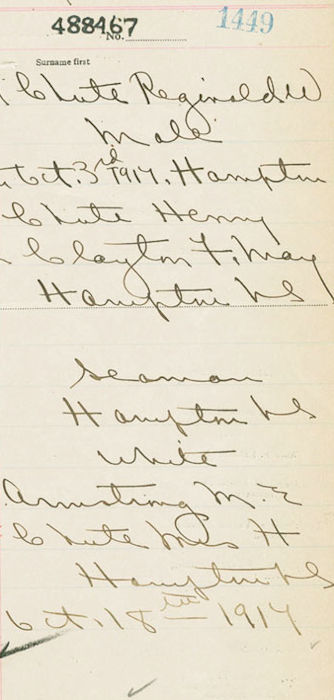 488467
1449
No.
Surname first
Chute Reginald W
Male
Oct. 3rd 1917, Hampton
Chute Henry
Clayton F. May
Hampton NS
Seaman
Hampton NS
White
Armstrong M. E
Chute Mrs H
Hampton NS
Oct. 18th 1917